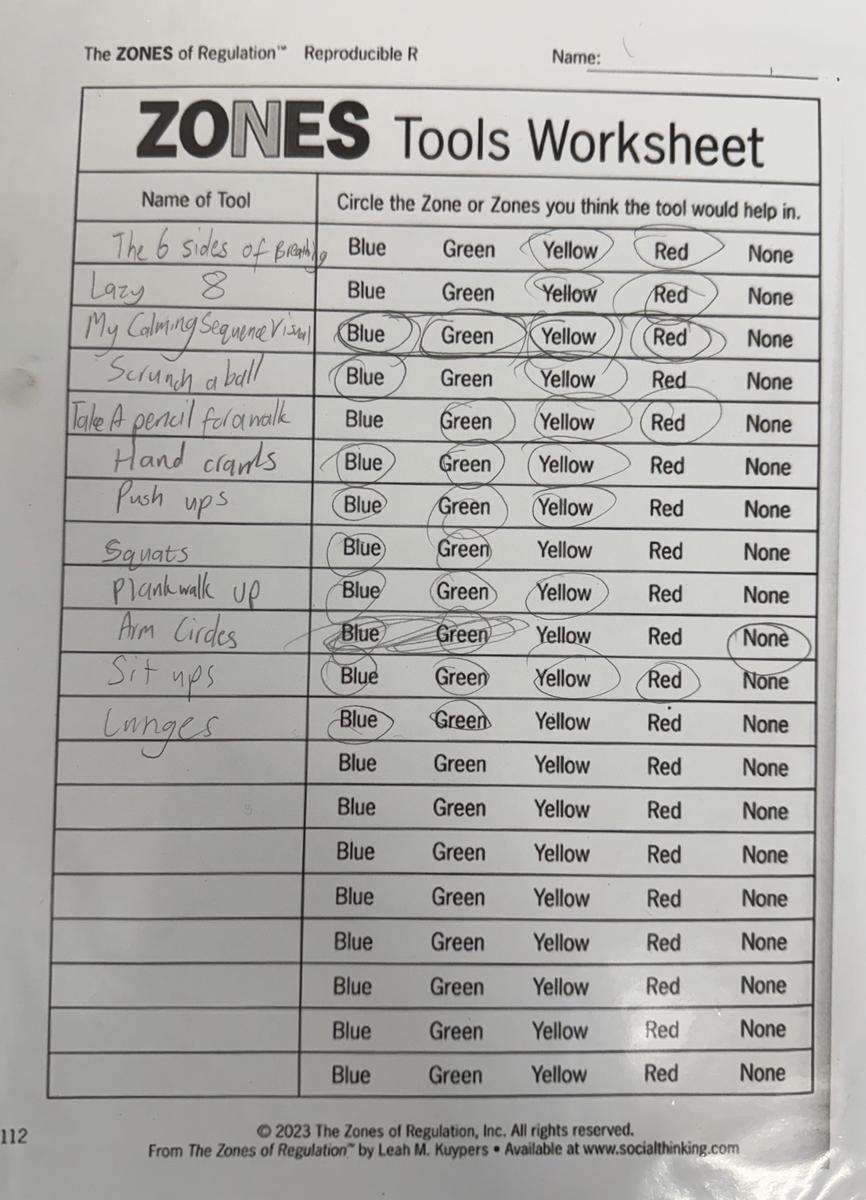 The ZONES of Regulation™ Reproducible R Name:
ZONES Tools Worksheet
Name of Tool Circle the Zone or Zones you think the tool would help in.
The 6 sides of Breathing Blue Green Yellow Red None
Lazy 8 Blue Green Yellow Red None
My Calming Sequence Visual Blue Green Yellow Red None
Scrunch a ball Blue Green Yellow Red None
Take A pencil for a walk Blue Green Yellow Red None
Hand crawls Blue Green Yellow Red None
Push ups Blue Green Yellow Red None
Squats Blue Green Yellow Red None
Plank walk up Blue Green Yellow Red None
Arm Circles Blue Green Yellow Red None
Sit ups Blue Green Yellow Red None
Lunges Blue Green Yellow Red None
Blue Green Yellow Red None
Blue Green Yellow Red None
Blue Green Yellow Red None
Blue Green Yellow Red None
Blue Green Yellow Red None
Blue Green Yellow Red None
Blue Green Yellow Red None
Blue Green Yellow Red None
112
© 2023 The Zones of Regulation, Inc. All rights reserved.
From The Zones of Regulation™ by Leah M. Kuypers • Available at www.socialthinking.com